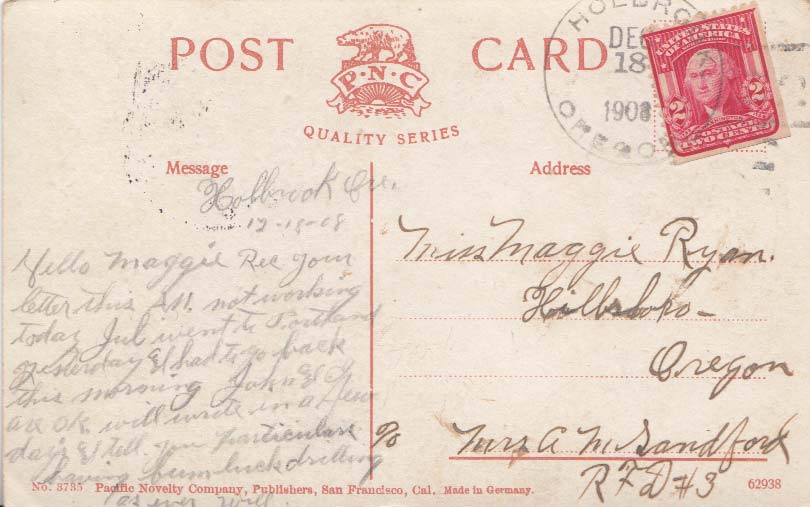 POST CARD
P·N·C
QUALITY SERIES
HOLBROOK
DEC
18
1908
OREGON
UNITED STATES
OF AMERICA
2 2
POSTAGE
TWO CENTS
Message
Address
Holbrook Ore.
12-18-08
Hello Maggie Rec your
letter this AM. not working
today Jul went to Portland
yesterday & had to go back
this morning John & I
are ok. will write in a few
days & tell you particulars
having bum luck drilling
as ever Will
Miss Maggie Ryan.
Hillsboro-
Oregon
℅ Mrs A M Sandford
RFD #3
No. 3735 Pacific Novelty Company, Publishers, San Francisco, Cal. Made in Germany.
62938